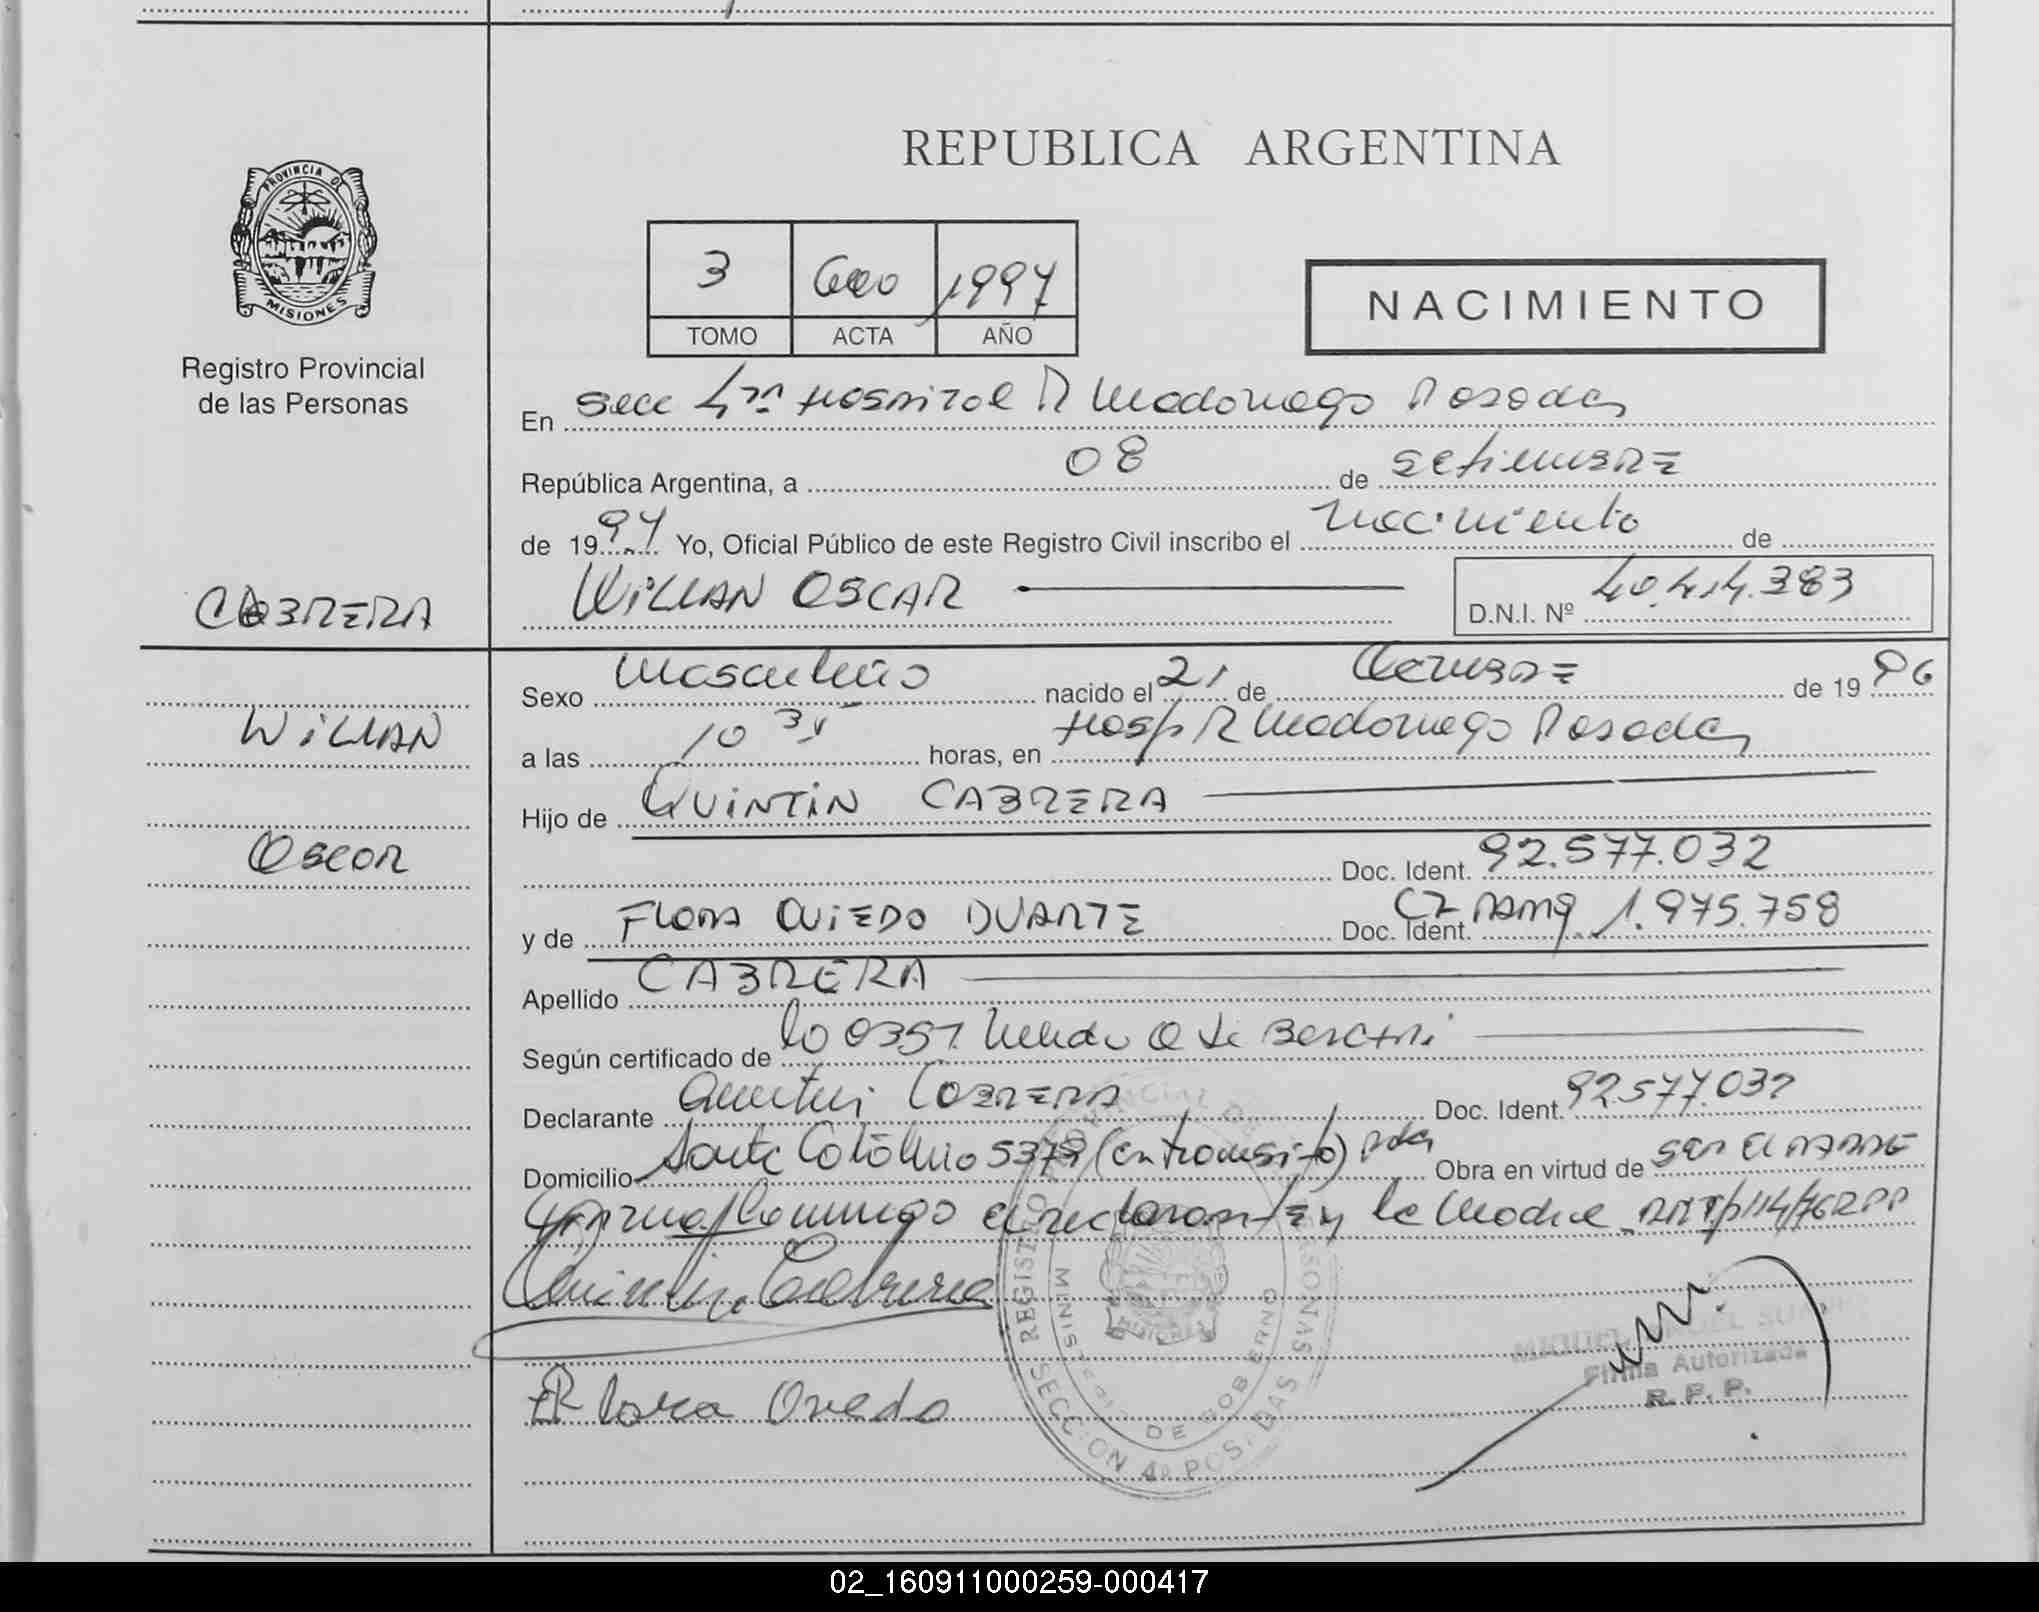 REPUBLICA ARGENTINA
PROVINCIA DE
MISIONES
Registro Provincial
de las Personas
3 1997
TOMO ACTA AÑO
NACIMIENTO
En Secc 4ta Hospital R Madariaga Posadas
República Argentina, a 08 de setiembre
de 1997 Yo, Oficial Público de este Registro Civil inscribo el nacimiento de
WILLIAN OSCAR D.N.I. Nº 40.414.383
CABRERA
Sexo Masculino nacido el 21 de de 1996
WILLIAN
a las 10 35 horas, en Hosp R Madariaga Posadas
Hijo de QUINTIN CABRERA
Oscar
Doc. Ident. 92.577.032
y de FLORA OVIEDO DUARTE Doc. Ident. 1.975.758
Apellido CABRERA
Según certificado de
Declarante Quintin CABRERA Doc. Ident. 92.577.032
Domicilio Santa Catalina 5378 Pdas Obra en virtud de ser el PADRE
el declarante y la Madre
Quintin Cabrera
Flora Ovedo
REGISTRO PROVINCIAL DE LAS PERSONAS
MINISTERIO DE GOBIERNO
MISIONES
SECCION 4a POSADAS
MIGUEL ANGEL
Firma Autorizada
R. P. P.
02_160911000259-000417